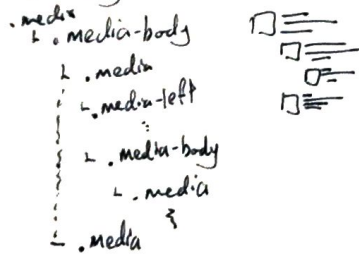 .media
.media-body
.media
.media-left
.media-body
.media
.media